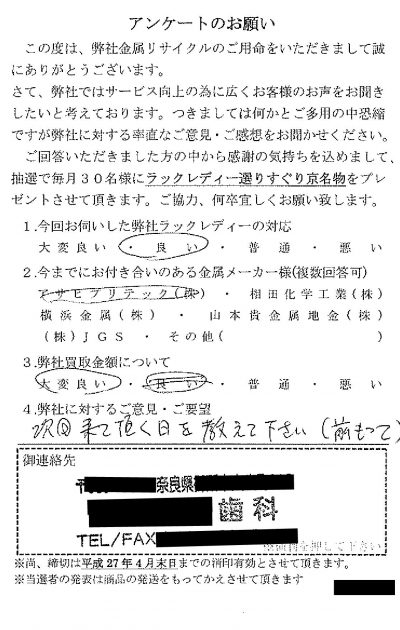 アンケートのお願い
この度は、弊社金属リサイクルのご用命をいただきまして誠
にありがとうございます。
さて、弊社ではサービス向上の為に広くお客様のお声をお聞き
したいと考えております。つきましては何かとご多用の中恐縮
ですが弊社に対する率直なご意見・ご感想をお聞かせください。
ご回答いただきました方の中から感謝の気持ちを込めまして、
抽選で毎月30名様にラックレディー選りすぐり京名物をプレ
ゼントさせて頂きます。ご協力、何卒宜しくお願い致します。
1.今回お伺いした弊社ラックレディーの対応
大変良い ・ 良い ・ 普通 ・ 悪い
2.今までにお付き合いのある金属メーカー様(複数回答可)
アサヒプリテック(株) ・ 相田化学工業(株)
横浜金属(株) ・ 山本貴金属地金(株)
(株)JGS ・ その他( )
3.弊社買取金額について
大変良い ・ 良い ・ 普通 ・ 悪い
4.弊社に対するご意見・ご要望
次回来て頂く日を教えて下さい(前もって)
御連絡先
〒 奈良県
歯科
TEL/FAX
を押して下さい
※尚、締切は平成27年4月末日までの消印有効とさせて頂きます。
※当選者の発表は商品の発送をもってかえさせて頂きます